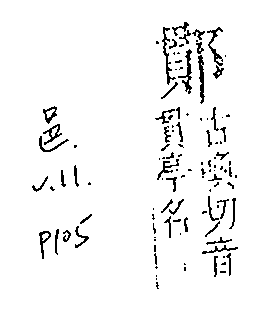 古喚切音
貫亭名
邑.
v.11.
P105